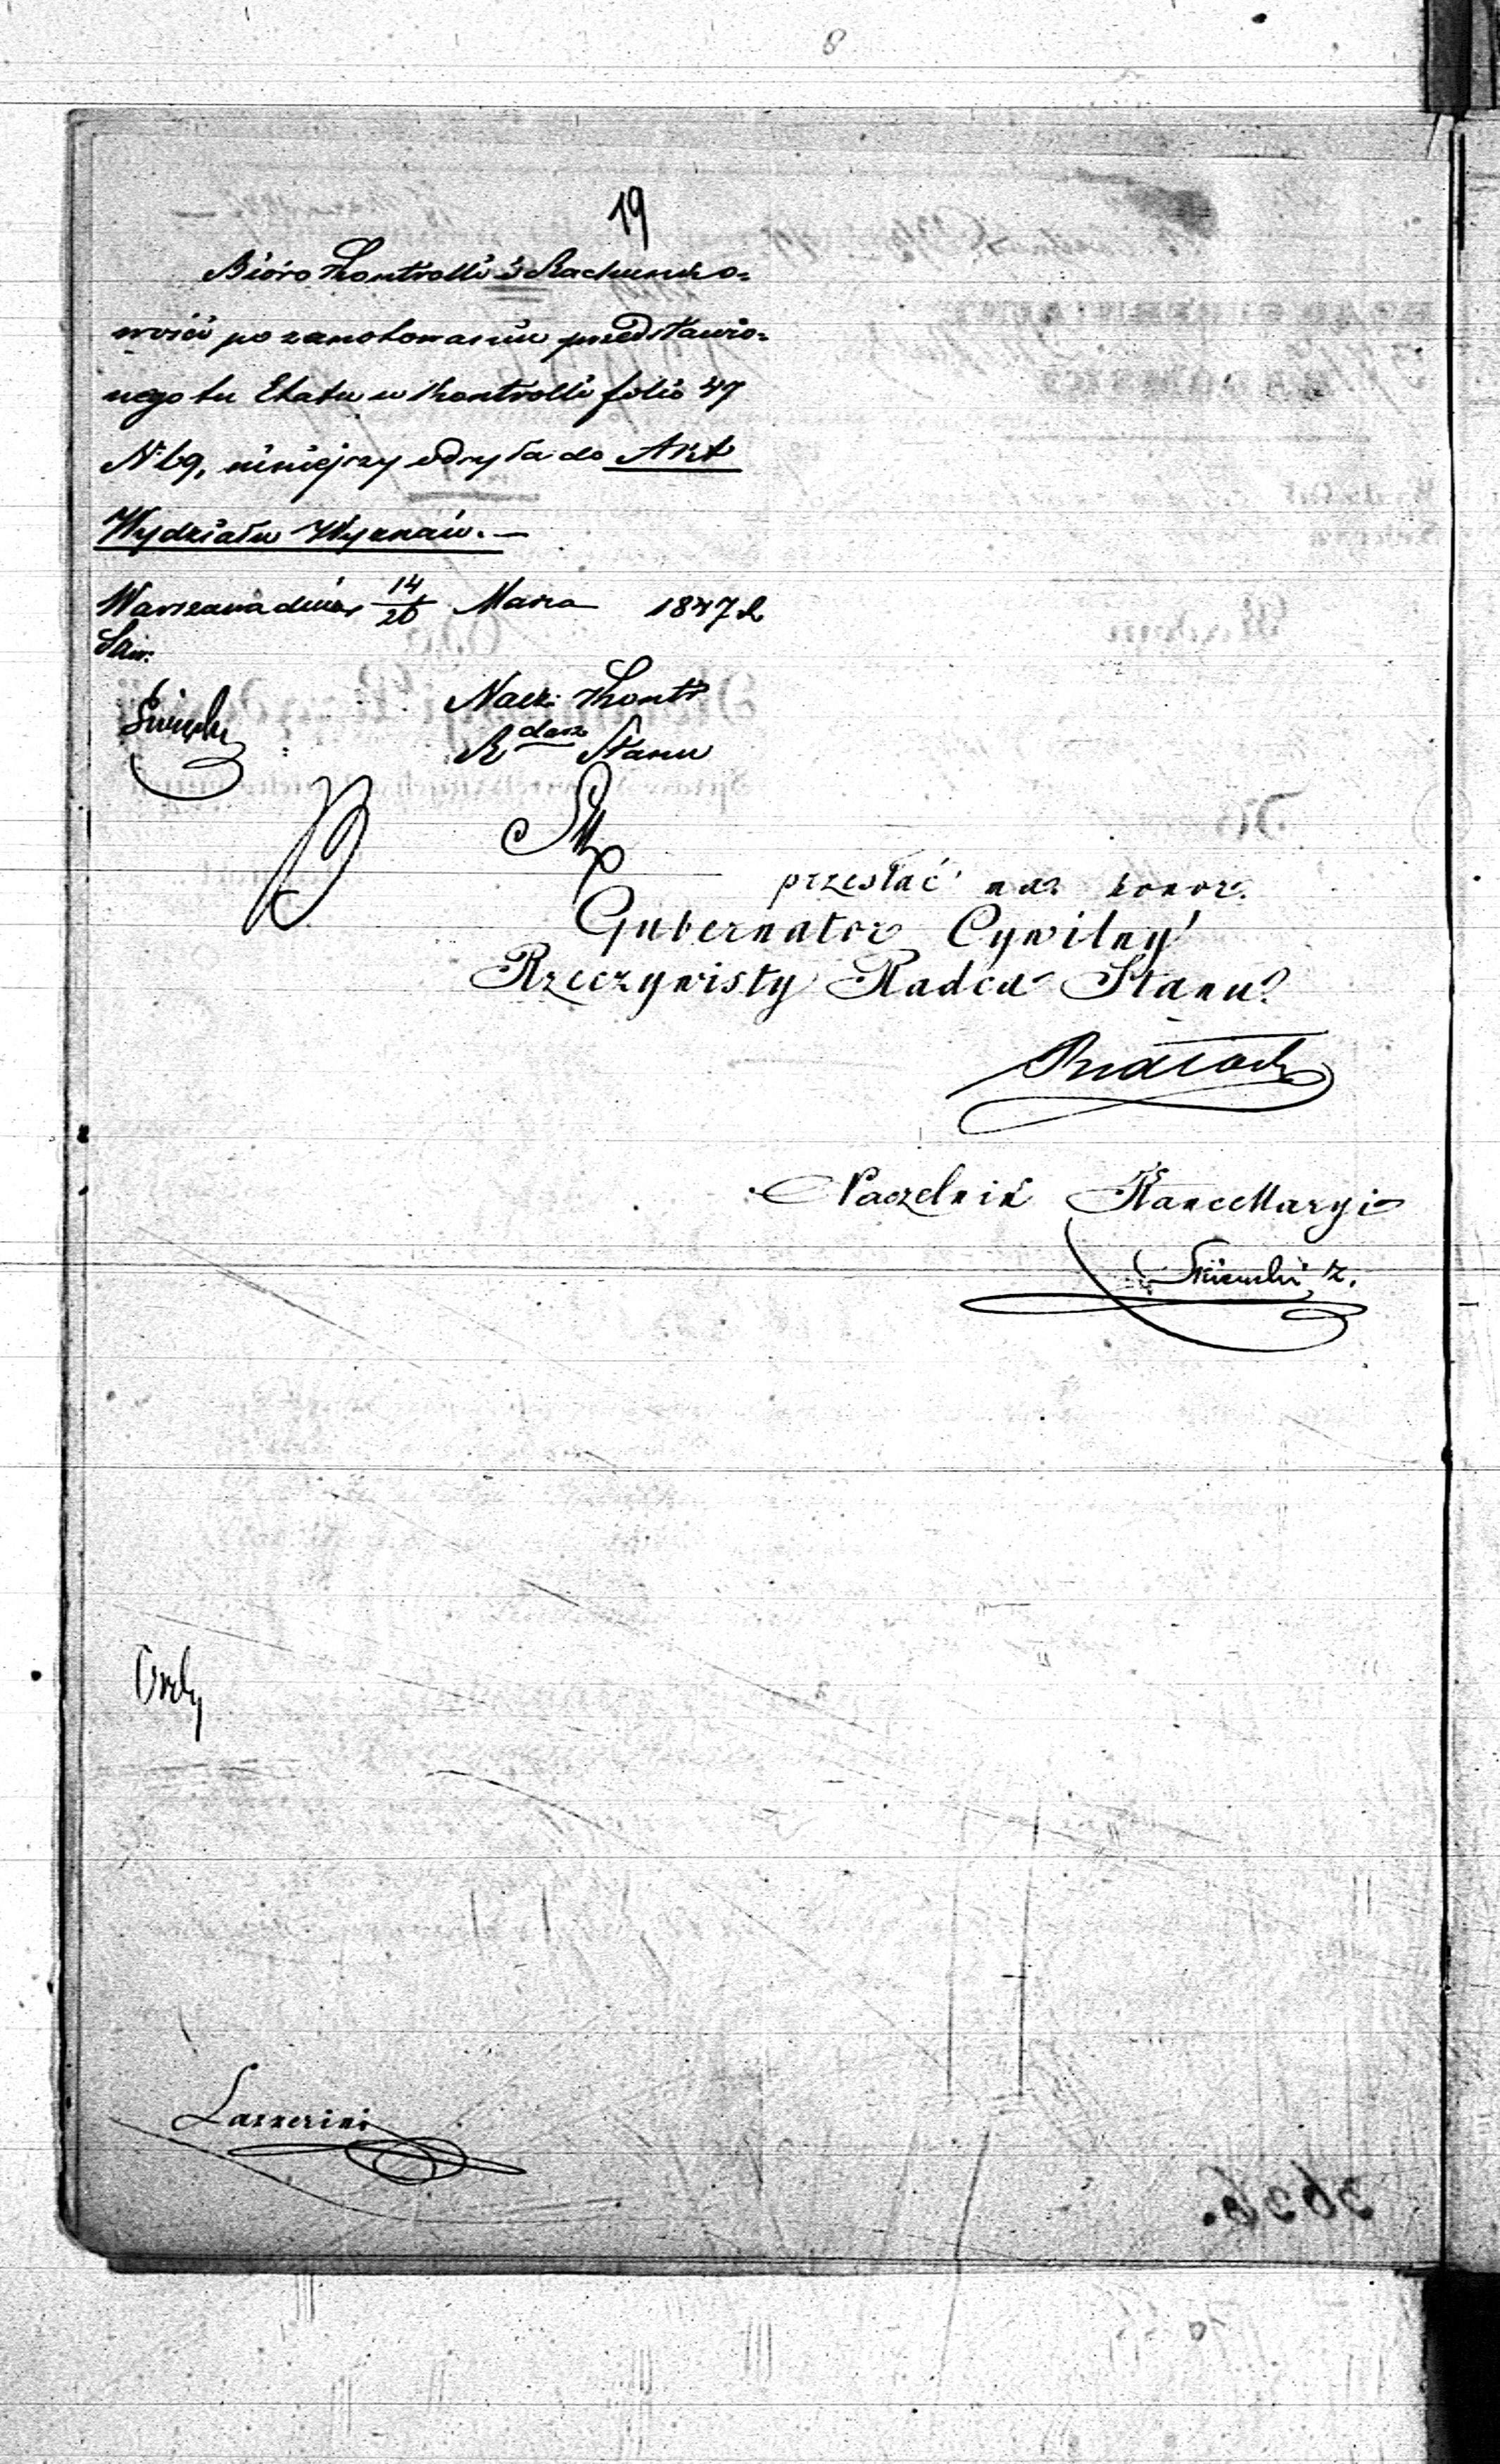 8
19
Bióro Kontrolli i Rachunko-
wości po zanotowaniu przedstawio-
nego tu Etatu w Kontrolli folio 47
N 69, niniejszy odsyła do Akt
Wydziału Wyznań. —
Warszawa dnia 14/26 Marca 1847 R
Naczl: Kontr
R dca Stanu
przesłać ma honor.
Gubernator Cywilny
Rzeczywisty Radca Stanu
Białoskó
Naczelnik Kancellaryi
Lazzerini